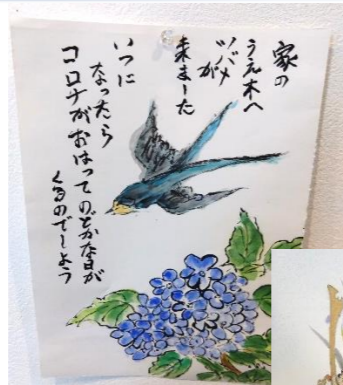 家の
うえ木へ
ツバメが
来ました
いつに
なったら
コロナがおわって
のどかな日が
くるのでしょう